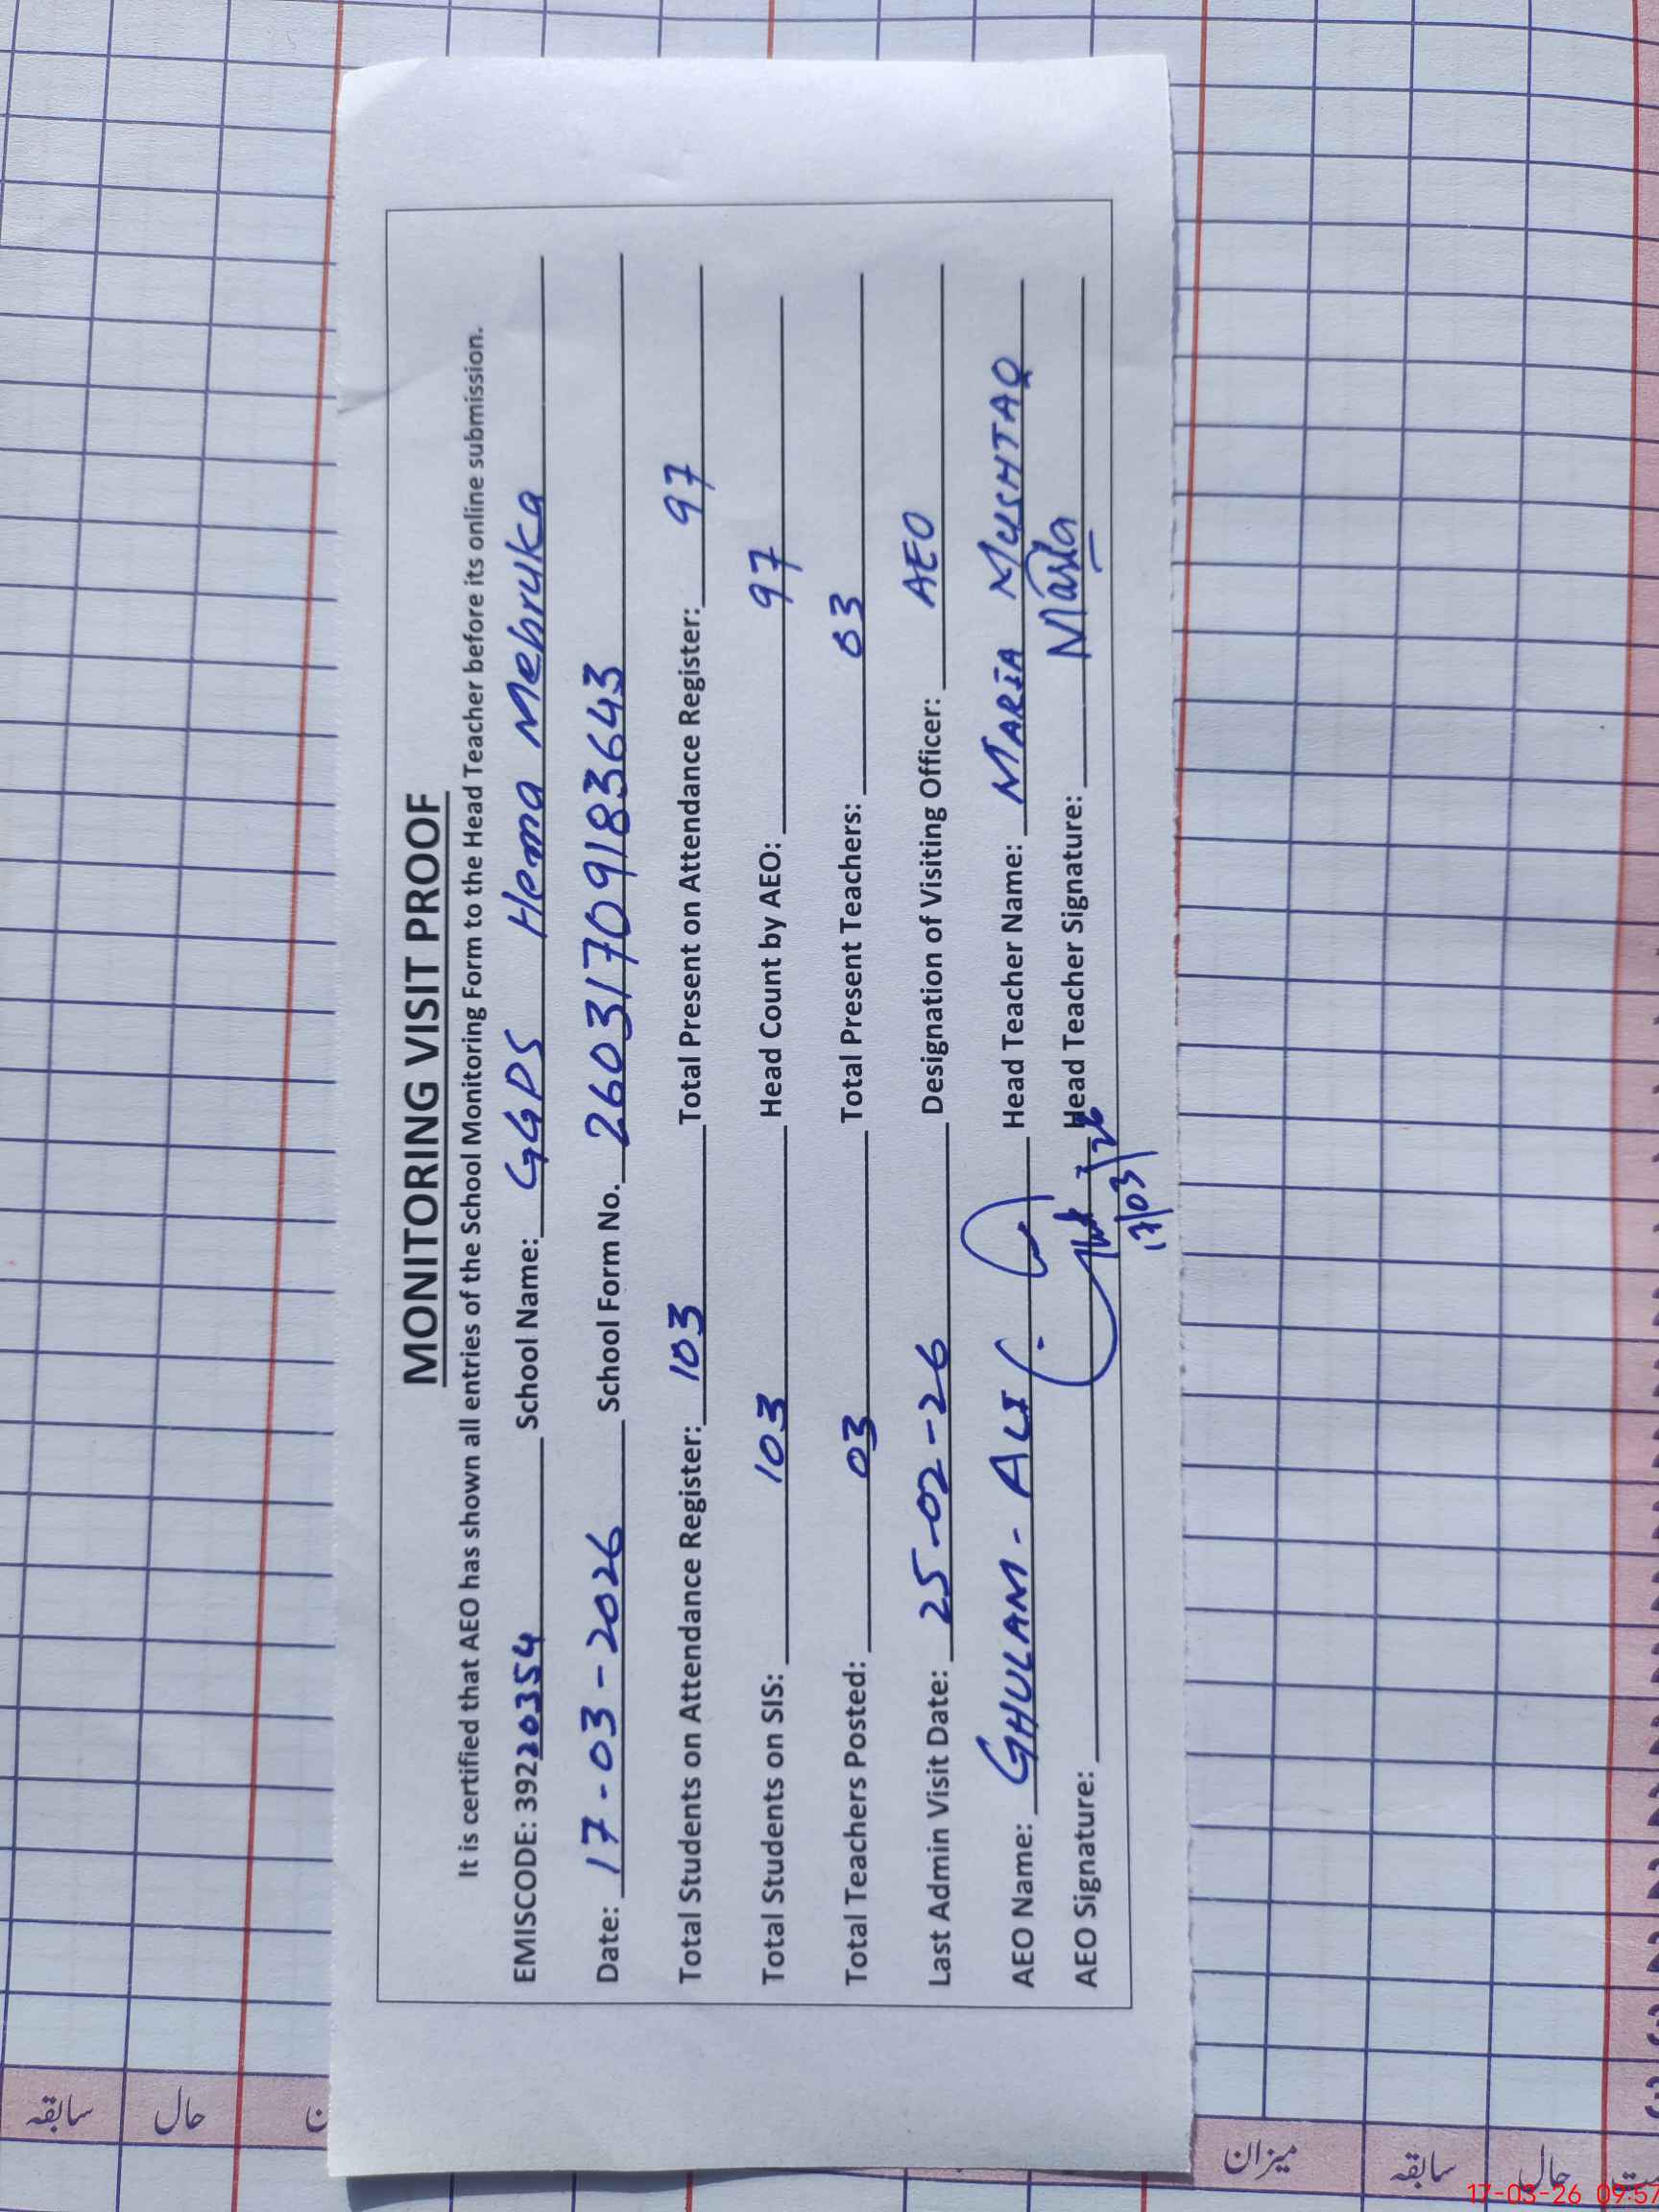 MONITORING VISIT PROOF
It is certified that AEO has shown all entries of the School Monitoring Form to the Head Teacher before its online submission.
EMISCODE: 39220354 School Name: GGPS Hema Mehruka
Date: 17-03-2026 School Form No. 26031709183643
Total Students on Attendance Register: 103 Total Present on Attendance Register: 97
Total Students on SIS: 103 Head Count by AEO: 97
Total Teachers Posted: 03 Total Present Teachers: 03
Last Admin Visit Date: 25-02-26 Designation of Visiting Officer: AEO
AEO Name: GHULAM - ALI Head Teacher Name: MARIA MUSHTAQ
AEO Signature: Head Teacher Signature: Maria
17/03/26
سابقہ
حال
میزان
سابقہ
حال
17-03-26 09:57